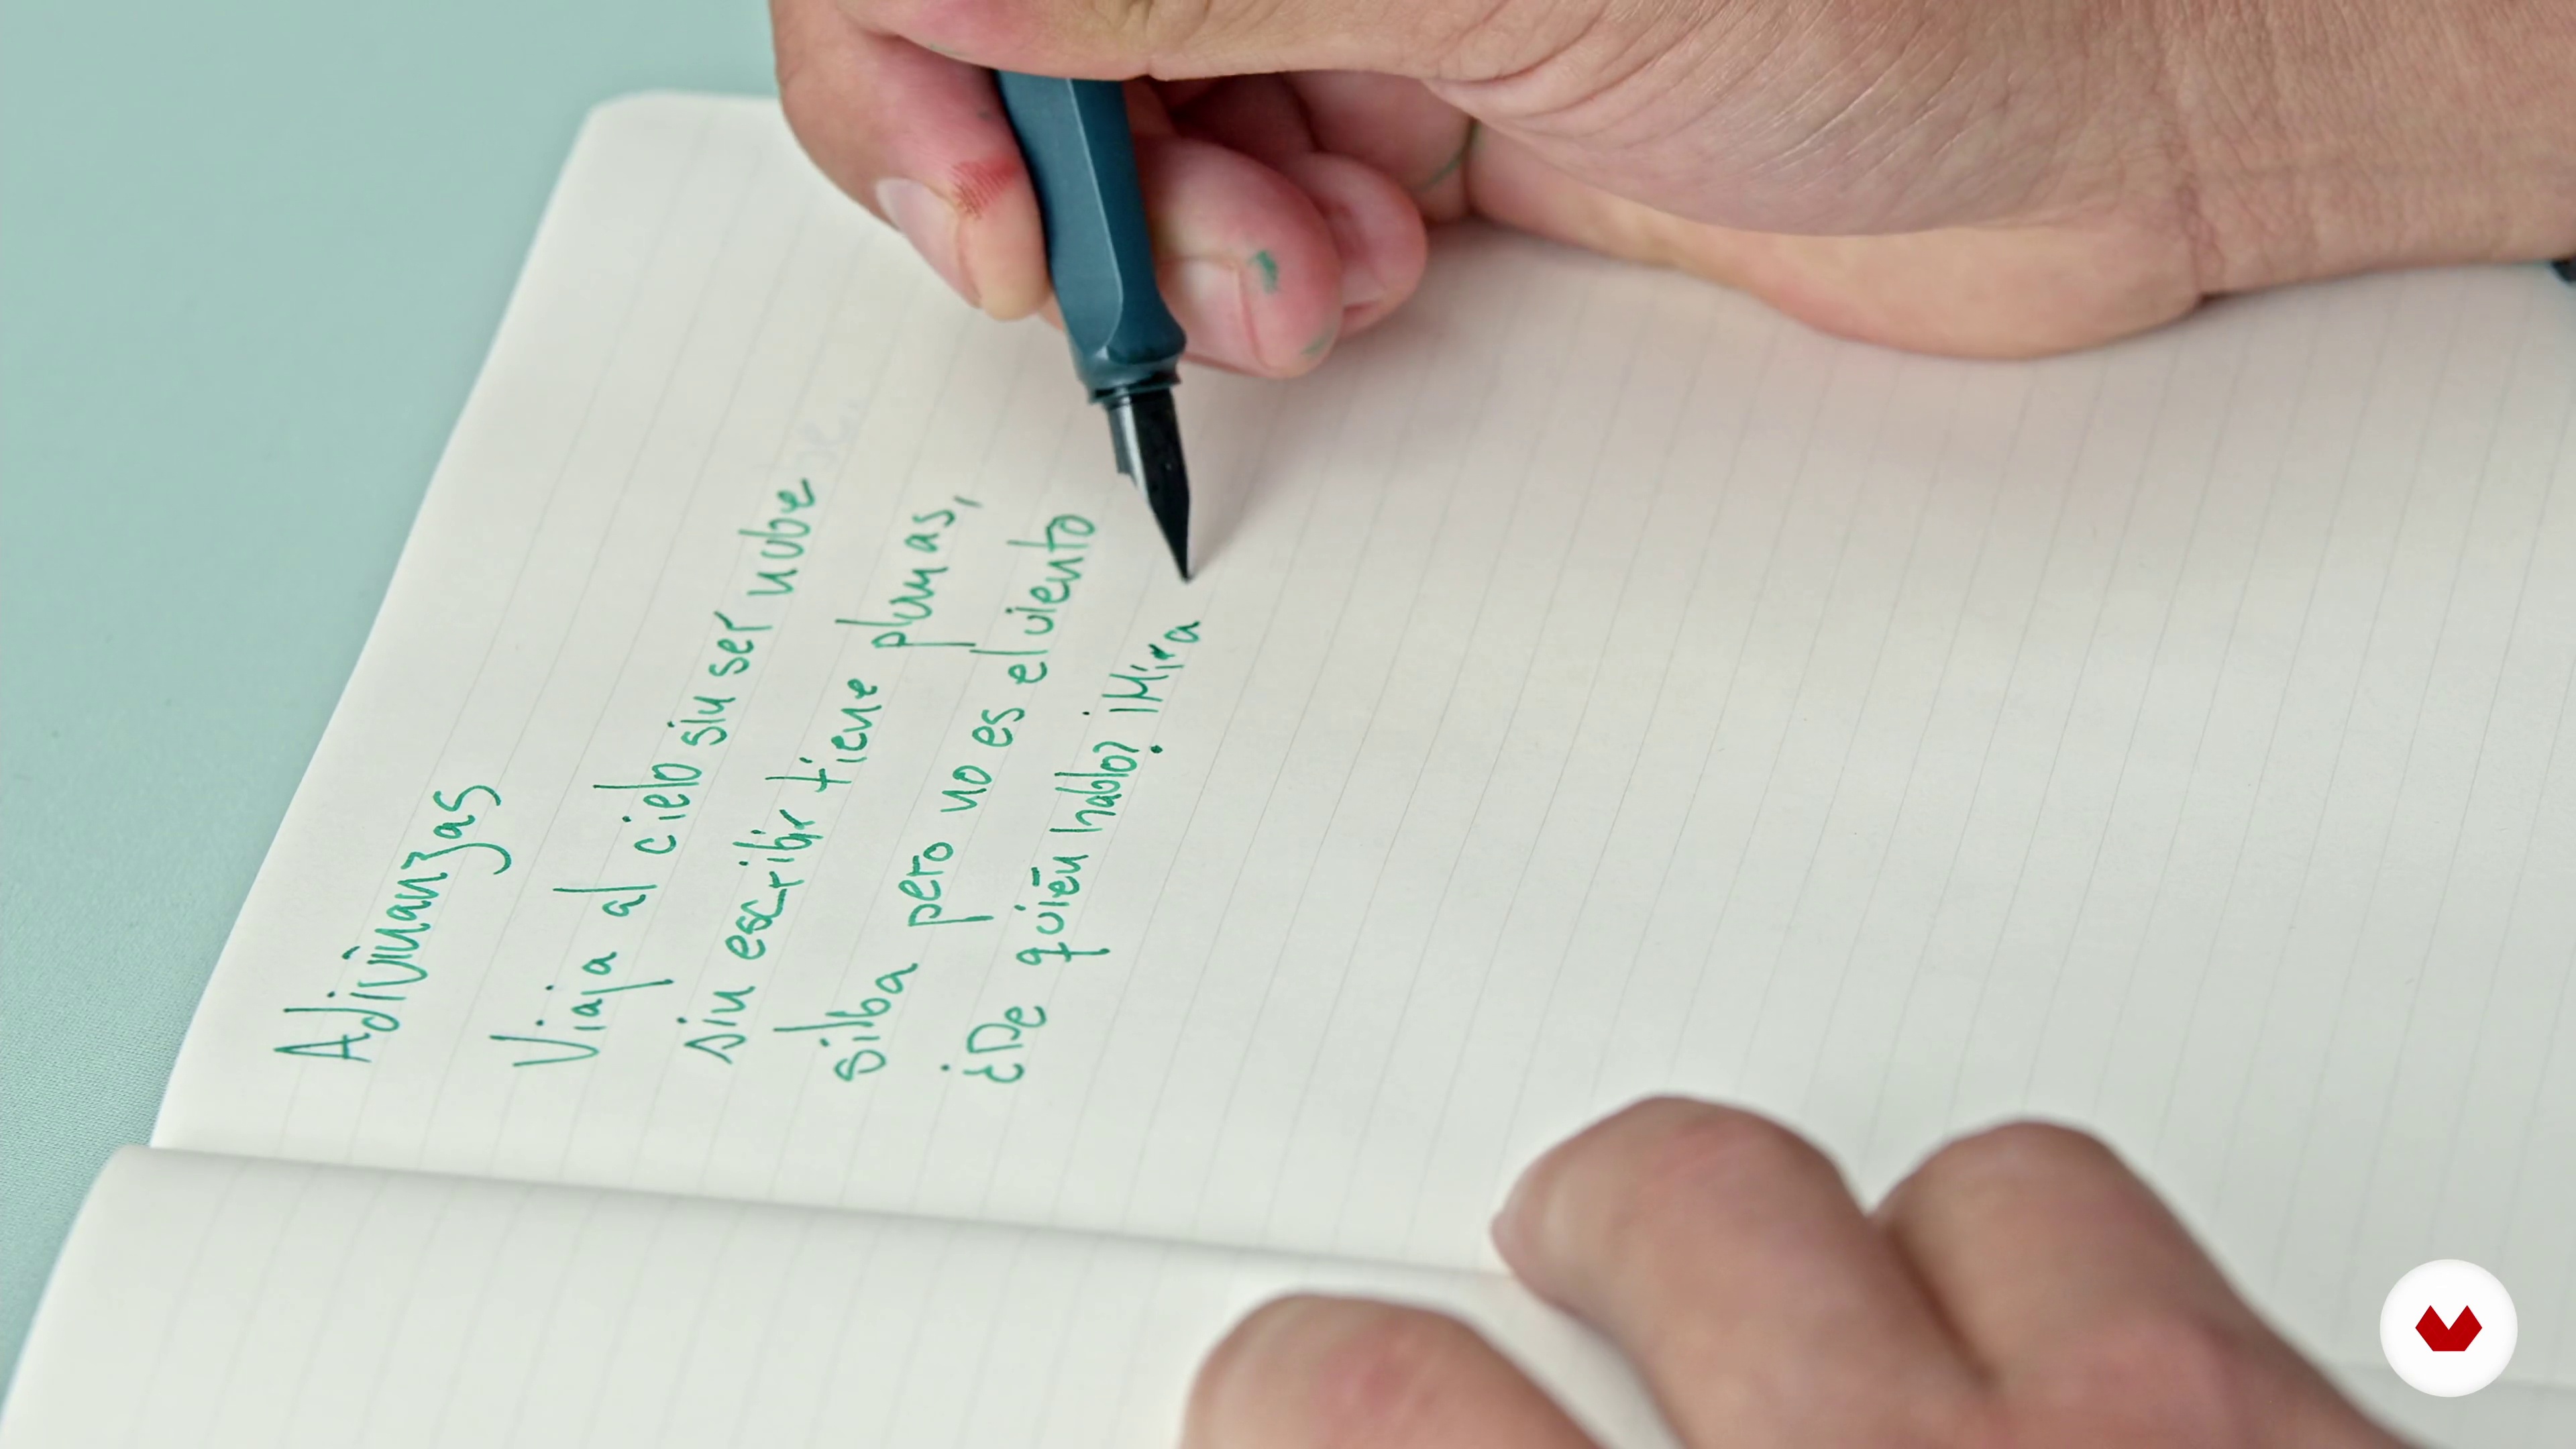 Adivinanzas
Viaja al cielo sin ser nube
sin escribir tiene plumas,
silba pero no es el viento
¿De quién hablo? ¡Mira